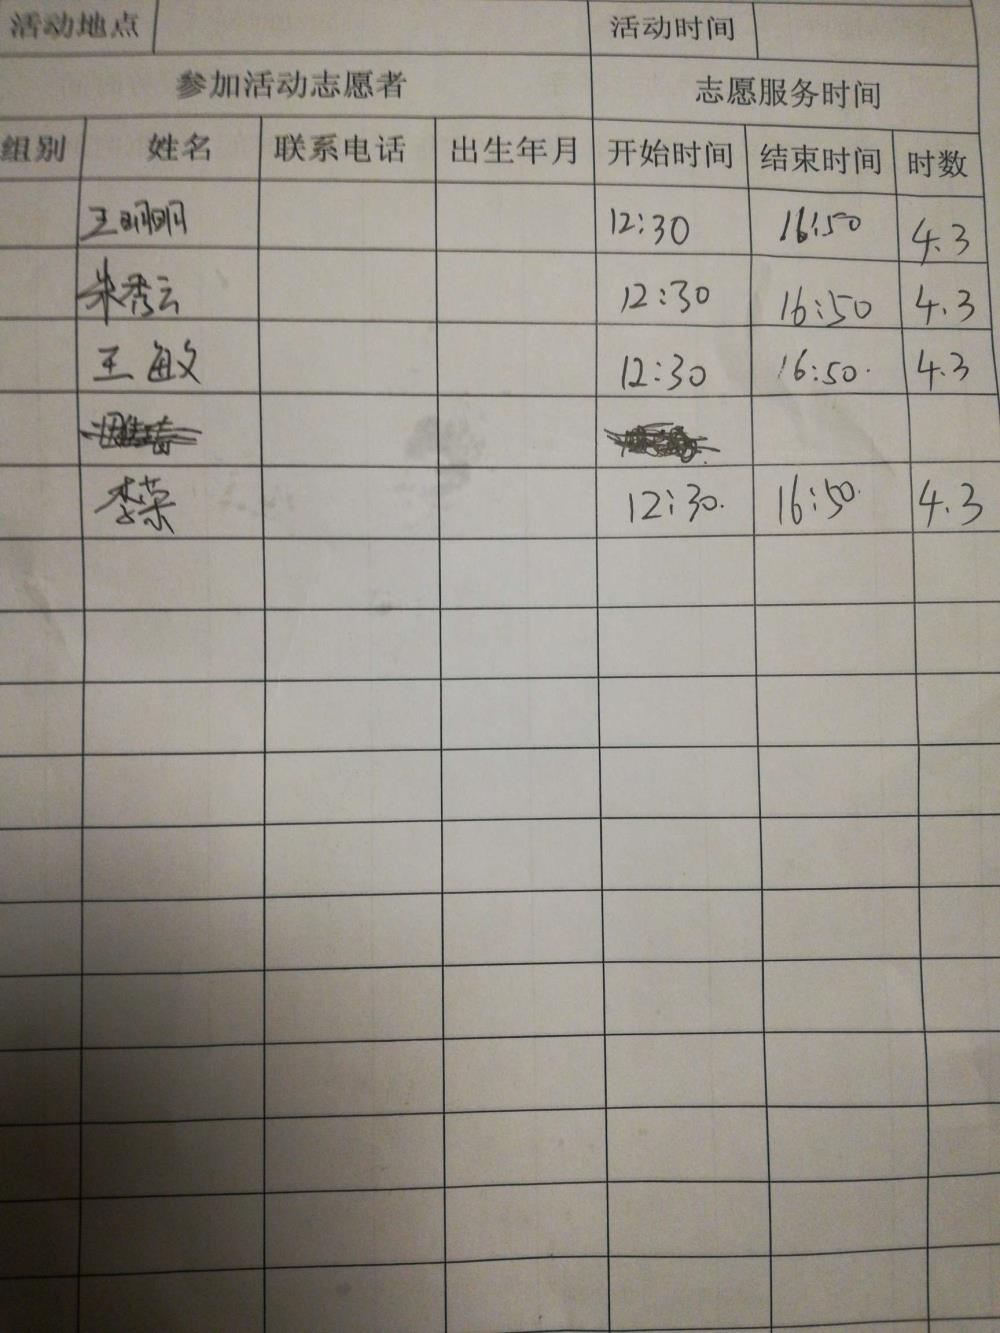 活动地点 活动时间
参加活动志愿者 志愿服务时间
组别 姓名 联系电话 出生年月 开始时间 结束时间 时数
王明明 12:30 16:50 4.3
朱秀云 12:30 16:50 4.3
王敏 12:30 16:50. 4.3
李荣 12:30. 16:50. 4.3